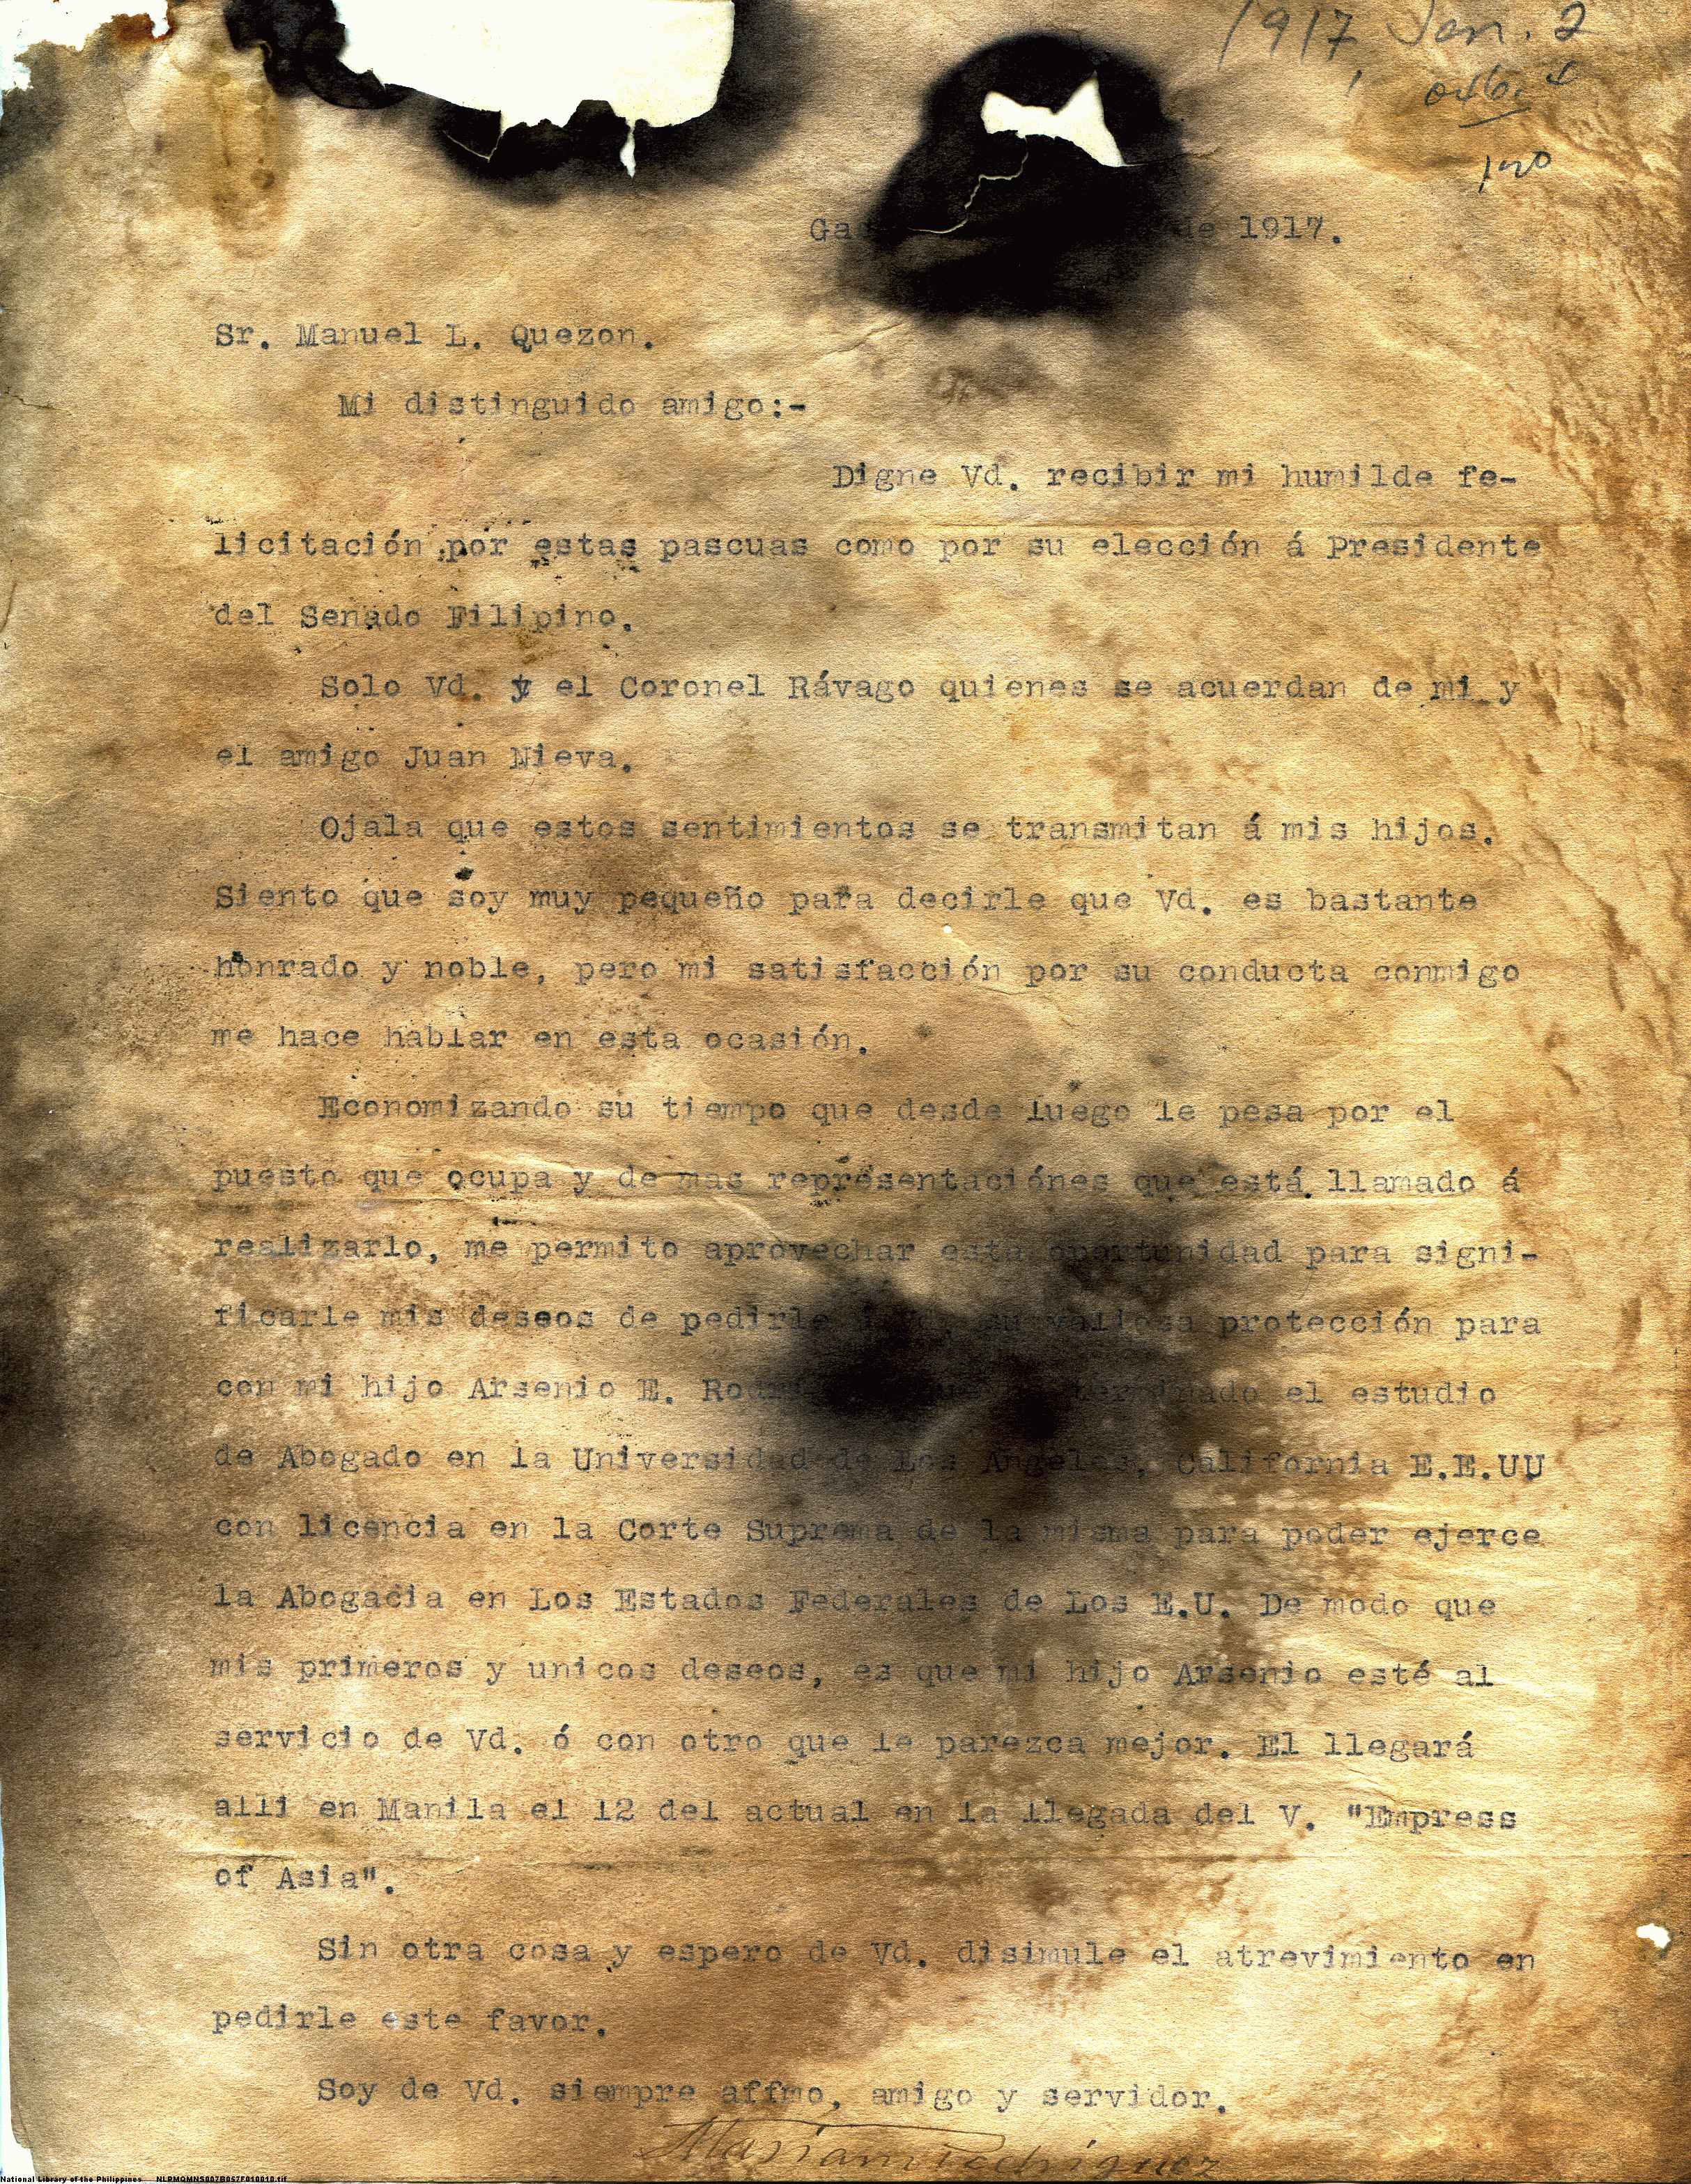 1917, Jan. 2
Ga de 1917.
Sr. Manuel L. Quezon.
Mi distinguido amigo:-
Digne Vd. recibir mi humilde fe-
licitación por estas pascuas como por su elección á Presidente
del Senado Filipino.
Solo Vd. y el Coronel Rávago quienes se acuerdan de mi y
el amigo Juan Nieva.
Ojala que estos sentimientos se transmitan á mis hijos.
Siento que soy muy pequeño para decirle que Vd. es bastante
honrado y noble, pero mi satisfacción por su conducta conmigo
me hace hablar en esta ocasión.
Economizando su tiempo que desde luego le pesa por el
puesto que ocupa y de mas representaciónes que está llamado á
realizarlo, me permito aprovechar esta oportunidad para signi-
ficarle mis deseos de pedirle á Vd. su valiosa protección para
con mi hijo Arsenio E. el estudio
de Abogado en la Universidad de Los Angeles, California E.E.UU
con licencia en la Corte Suprema de la misma para poder ejerce
la Abogacia en Los Estados Federales de Los E.U. De modo que
mis primeros y unicos deseos, es que mi hijo Arsenio esté al
servicio de Vd. ó con otro que le parezca mejor. El llegará
alli en Manila el 12 del actual en la llegada del V. "Empress
of Asia".
Sin otra cosa y espero de Vd. disimule el atrevimiento en
pedirle este favor.
Soy de Vd. siempre affmo, amigo y servidor.
Mariano Rodriguez
National Library of the Philippines NLPMQMNS007B057F010010.tif